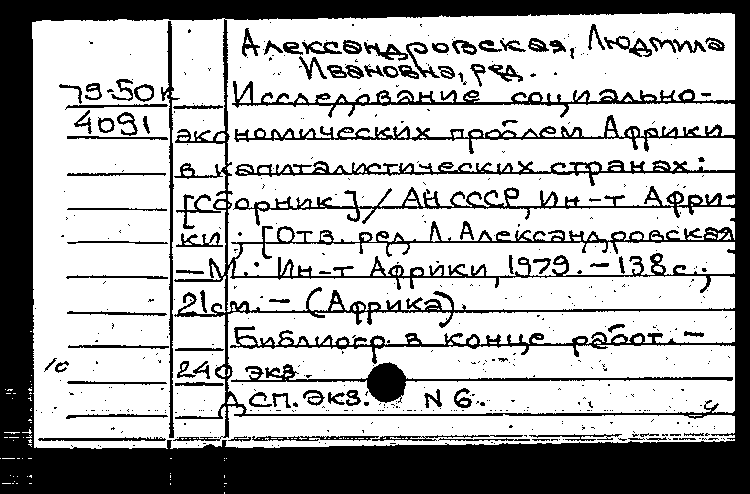 Александровская, Людмила
Ивановна, ред.
79-50к Исследование социально-
4091 экономических проблем Африки
в капиталистических странах:
[Сборник] / АН СССР, Ин-т Афри-
ки; [Отв. ред. Л. Александровская
—М.: Ин-т Африки, 1979. — 138 с.;
21 см. — (Африка).
Библиогр. в конце работ. —
240 экз.
ДСП. экз. N 6.